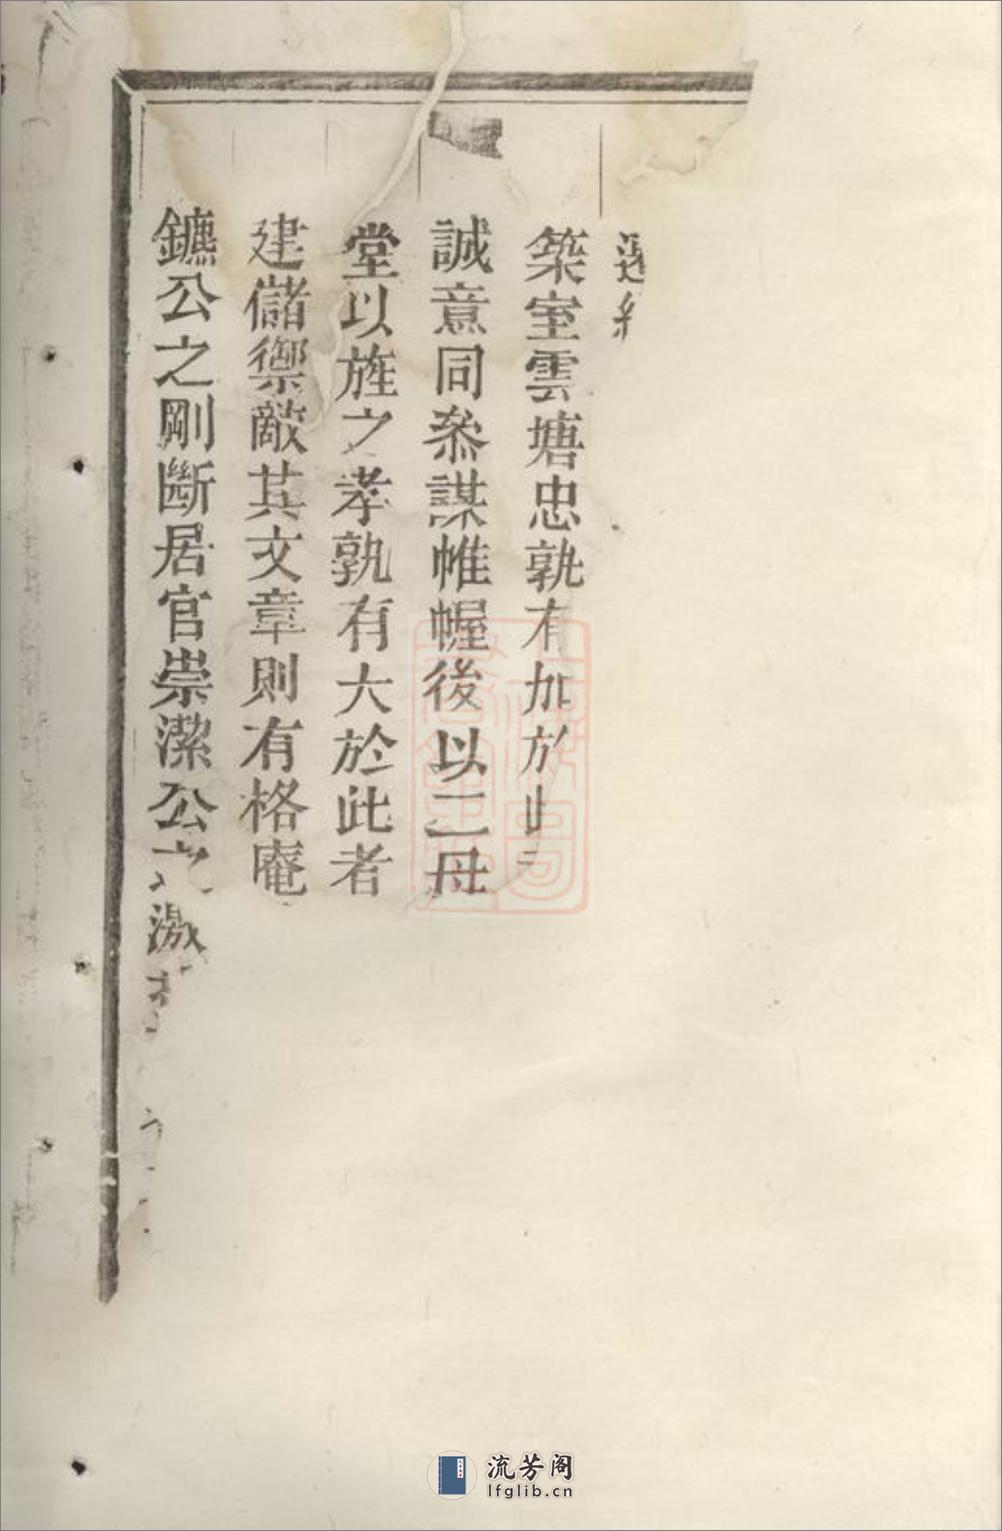 築室雲塘忠孰有加於此
誠意同叅謀帷幄後以二母
堂以旌之孝孰有大於此者
建儲禦敵其文章則有格庵
鑣公之剛斷居官崇潔公之激
流芳阁
lfglib.cn